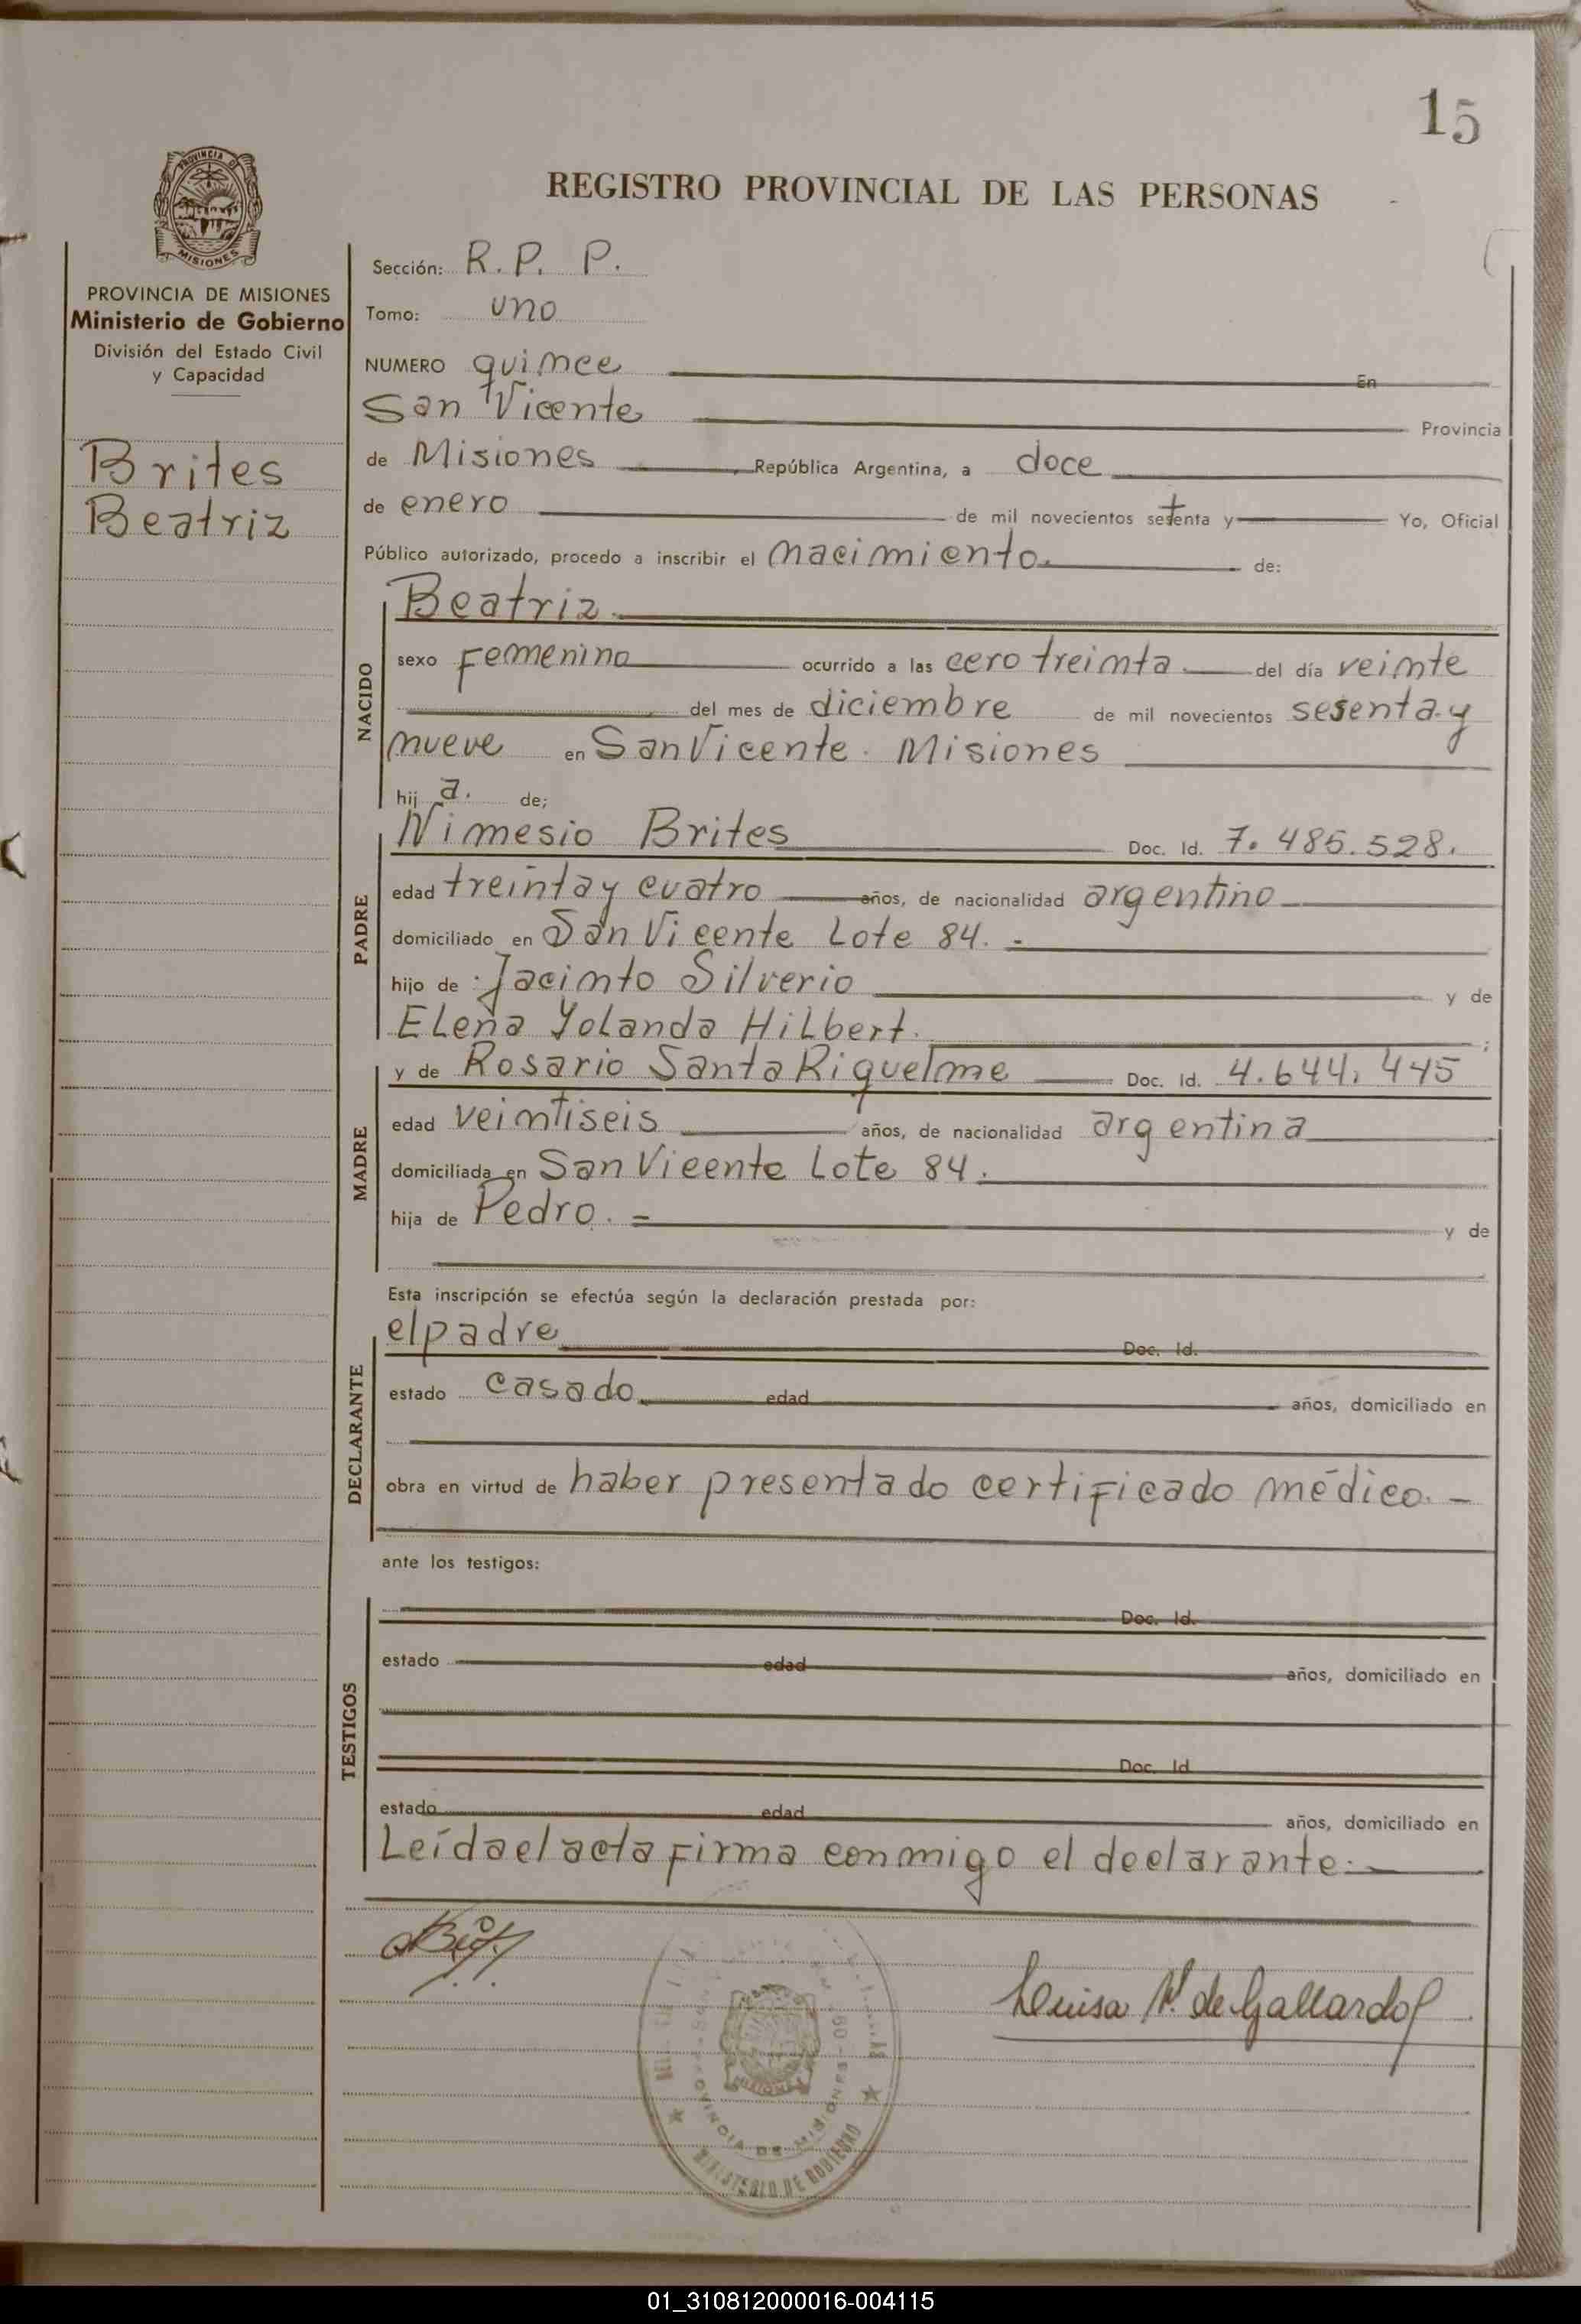 15
REGISTRO PROVINCIAL DE LAS PERSONAS
PROVINCIA DE MISIONES
Ministerio de Gobierno
División del Estado Civil
y Capacidad
Brites
Beatriz
Sección: R. P. P.
Tomo: uno
NUMERO quince En
San Vicente Provincia
de Misiones , República Argentina, a doce
de enero de mil novecientos setenta y Yo, Oficial
Público autorizado, procedo a inscribir el nacimiento. de:
NACIDO
Beatriz
sexo Femenino ocurrido a las cero treinta del día veinte
del mes de diciembre de mil novecientos sesenta y
nueve en San Vicente. Misiones
hij a. de;
PADRE
Nimesio Brites Doc. Id. 7.485.528.
edad treinta y cuatro años, de nacionalidad argentino
domiciliado en San Vicente Lote 84. -
hijo de Jacinto Silverio y de
Elena Yolanda Hilbert. ;
MADRE
y de Rosario Santa Riquelme Doc. Id. 4.644.445
edad veintiseis años, de nacionalidad argentina
domiciliada en San Vicente Lote 84.
hija de Pedro. = y de
Esta inscripción se efectúa según la declaración prestada por:
DECLARANTE
el padre Doc. Id.
estado casado edad años, domiciliado en
obra en virtud de haber presentado certificado médico. -
ante los testigos:
TESTIGOS
Doc. Id.
estado edad años, domiciliado en
Doc. Id
estado edad años, domiciliado en
Leída el acta firma conmigo el declarante.
Luisa de Gallardo
PROVINCIA DE MISIONES
MINISTERIO DE GOBIERNO
01_310812000016-004115